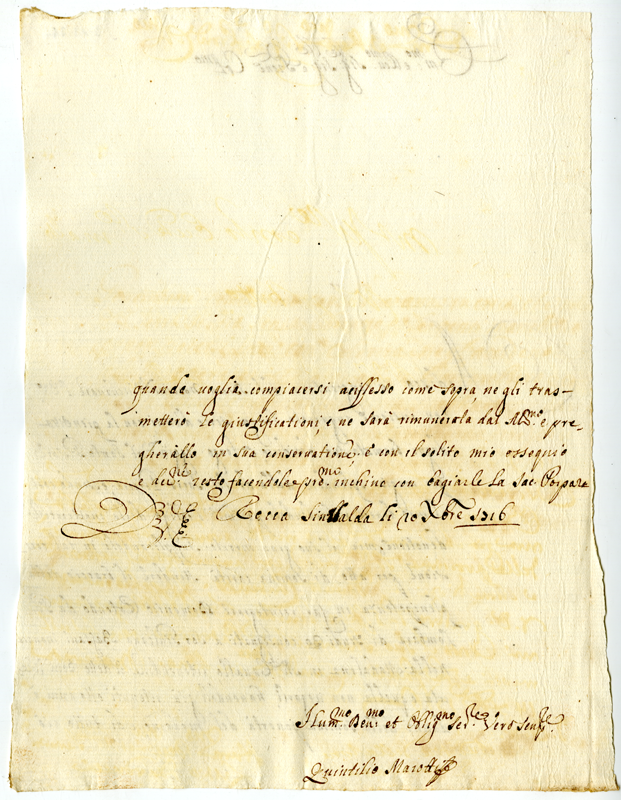 quando voglia compiacersi acciffesso come sopra ne gli tras-
metterò le giustificationi, e ne sarà rimunerata dal Alt.mo e pre-
gherallo in sua conservatione, e con il solito mio ossequio
e resto facendole inchino con bagiarle la Sac. Porpora
Rocca Sinibalda li 20 Xbre 1716
Hum.mo Dev.mo et Oblig.mo Ser.re Vero Semp.re
Quintilio Marotti